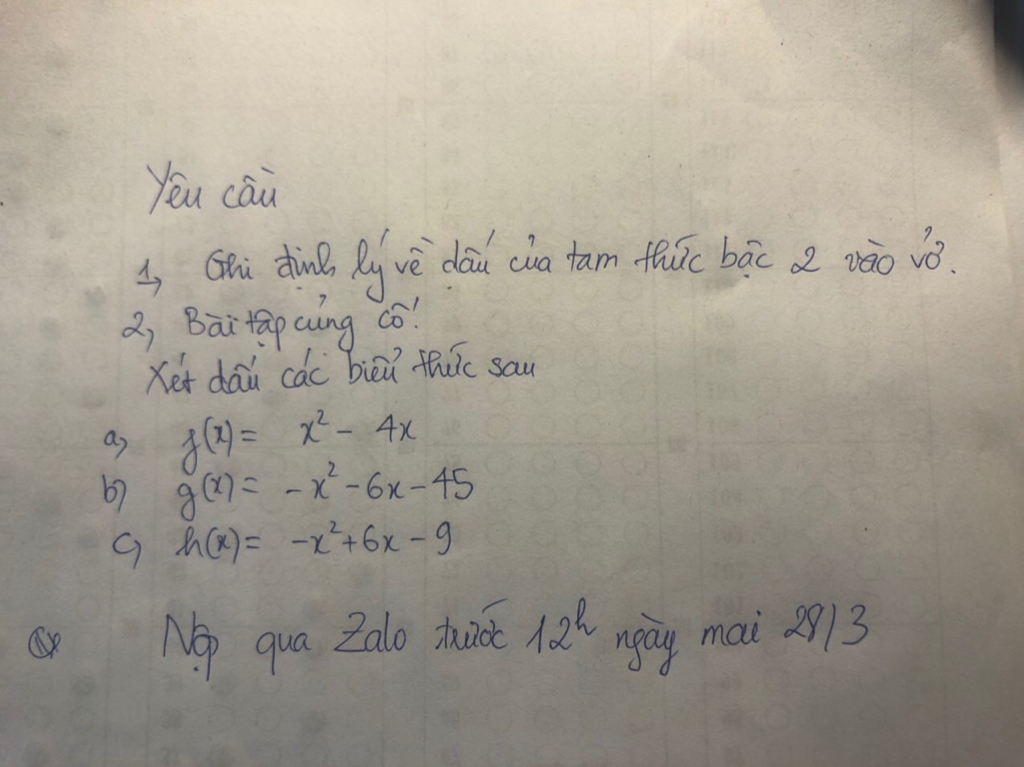 Yêu cầu
1, Ghi định lý về dấu của tam thức bậc 2 vào vở.
2, Bài tập củng cố!
Xét dấu các biểu thức sau
a, f(x) = x² - 4x
b, g(x) = -x² - 6x - 45
c, h(x) = -x² + 6x - 9
Nộp qua Zalo trước 12h ngày mai 28/3